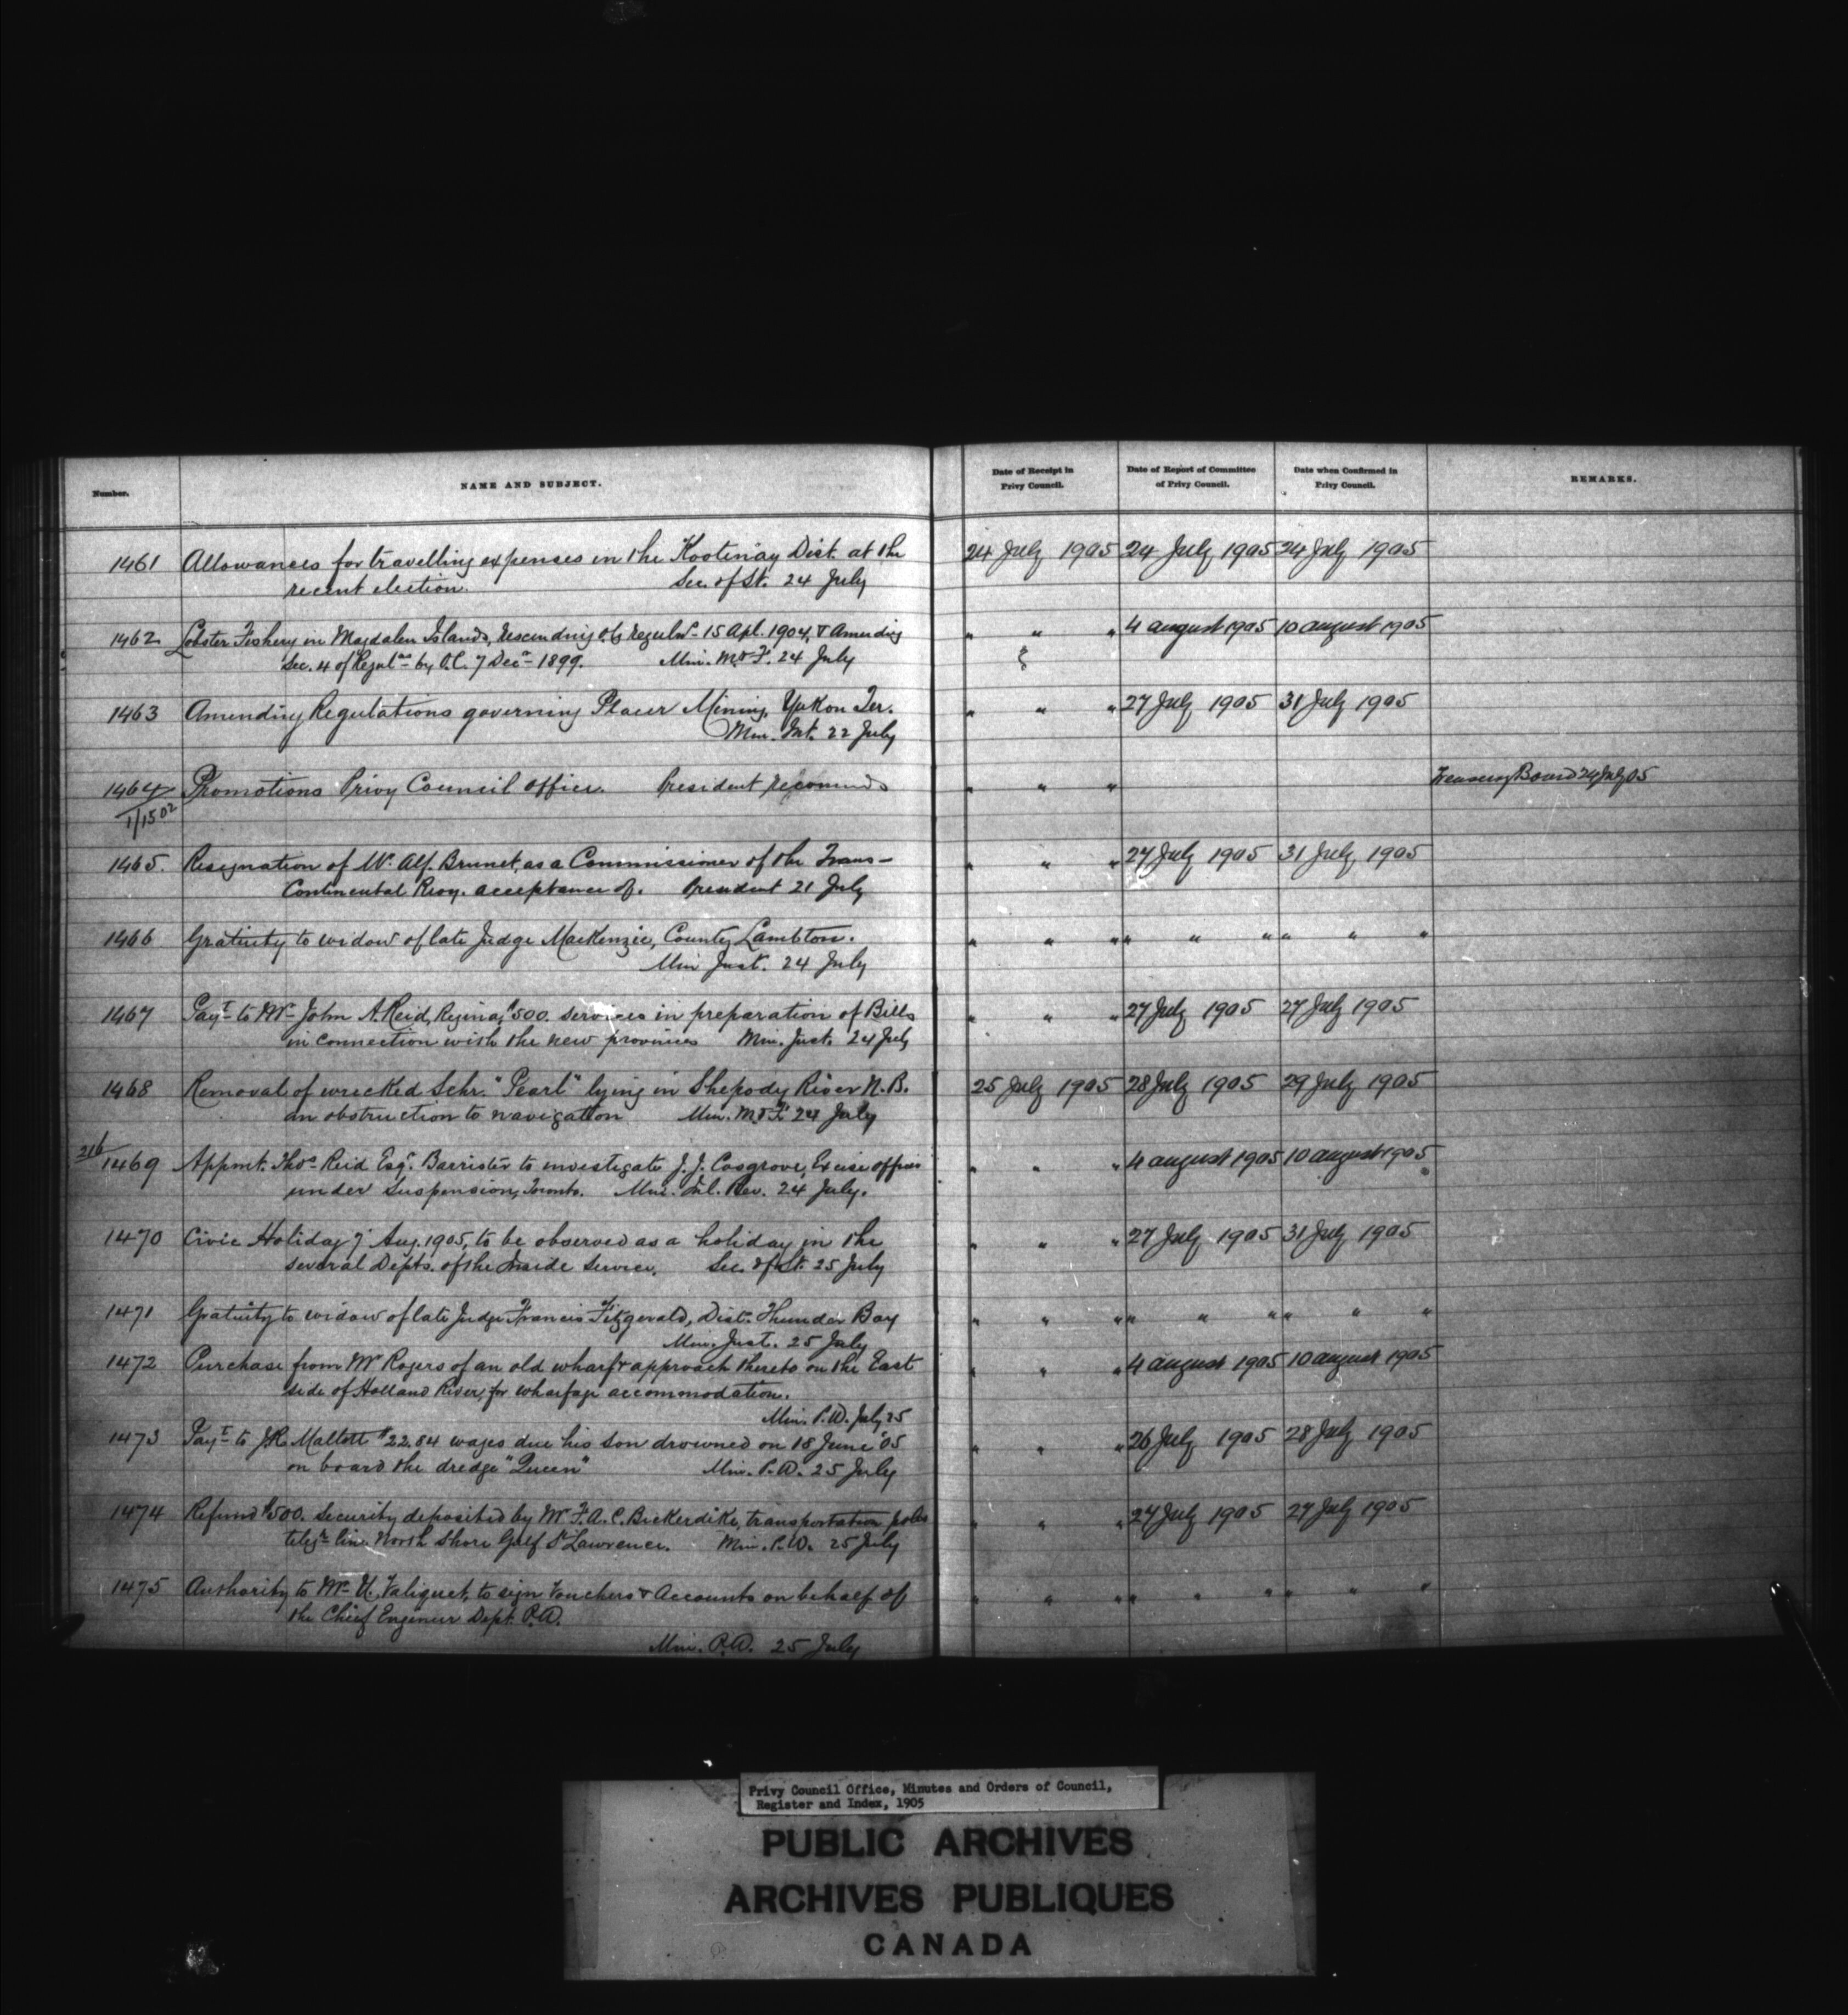 Number. NAME AND SUBJECT. Date of Receipt in Privy Council. Date of Report of Committee of Privy Council. Date when Confirmed in Privy Council. REMARKS.
1461 Allowances for travelling expenses in the Kootenay Dist. at the 24 July 1905 24 July 1905 24 July 1905
recent election. Sec. of St. 24 July
1462 Lobster Fishery in Magdalen Islands, rescinding regulns 15 Apl. 1904, & Amending " " " 4 August 1905 10 August 1905
Sec. 4 of Regulns by O.C. 7 Decr 1899. Min. M & F. 24 July
1463 Amending Regulations governing Placer Mining, Yukon Ter. " " " 27 July 1905 31 July 1905
Min. Int. 22 July
1464 Promotions Privy Council Office. President recommends " " " Treasury Board 24 July 05
1/1502
1465. Resignation of Mr. Alf. Brunet, as a Commissioner of the Trans- " " " 27 July 1905 31 July 1905
Continental Rwy. acceptance of. President 21 July
1466 Gratuity to widow of late Judge MacKenzie, County Lambton. " " " " " " " " "
Min Just. 24 July
1467 Payt to Mr John A. Reid, Regina, $500. services in preparation of Bills " " " 27 July 1905 27 July 1905
in connection with the new provinces Min. Just. 24 July
1468 Removal of wrecked Schr. "Pearl" lying in Shepody River N.B. 25 July 1905 28 July 1905 29 July 1905
an obstruction to navigation Min. M & F 24 July
216
1469 Appmt. Thos Reid Esqr. Barrister to investigate J. J. Cosgrove, Excise officer " " " 4 August 1905 10 August 1905
under suspension, Toronto. Min. Inl. Rev. 24 July.
1470 Civic Holiday 7 Aug. 1905, to be observed as a holiday in the " " " 27 July 1905 31 July 1905
several Depts. of the Inside Service. Sec. of St. 25 July
1471 Gratuity to widow of late Judge Francis Fitzgerald, Dist. Thunder Bay " " " " " " " " "
Min. Just. 25 July
1472 Purchase from Mr Rogers of an old wharf & approach thereto on the East " " " 4 August 1905 10 August 1905
side of Holland River, for wharfage accommodation.
Min. P.W. July 25
1473 Payt to J.R. Mallett $22.84 wages due his son drowned on 18 June '05 " " " 26 July 1905 28 July 1905
on board the dredge "Queen" Min. P.W. 25 July
1474 Refund $500. security deposited by Mr F. A. C. Bickerdike, transportation poles " " " 27 July 1905 27 July 1905
telegh line North Shore Gulf St Lawrence. Min. P.W. 25 July
1475 Authority to Mr U. Valiquet, to sign Vouchers & Accounts on behalf of " " " " " " " " "
the Chief Engineer Dept. P.W.
Min. P.W. 25 July
Privy Council Office, Minutes and Orders of Council,
Register and Index, 1905
PUBLIC ARCHIVES
ARCHIVES PUBLIQUES
CANADA